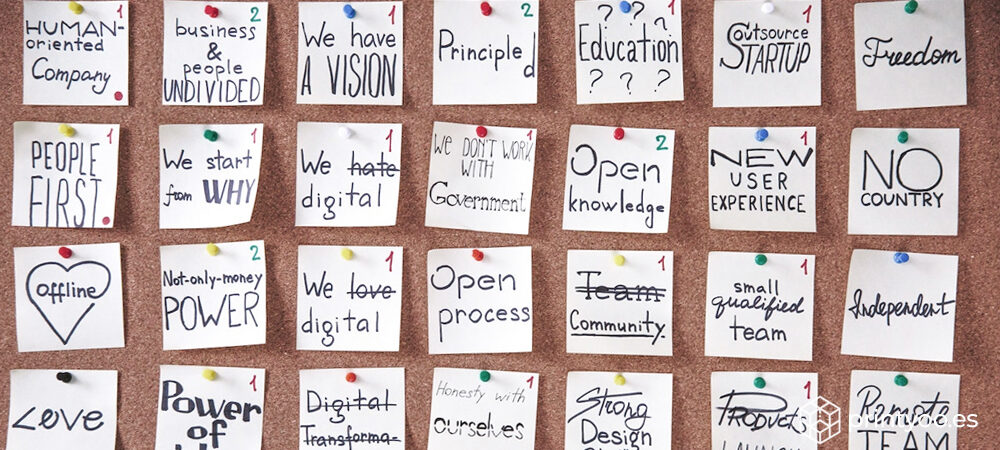 1
HUMAN-
oriented
Company
2
business
&
people
UNDIVIDED
1
We have
A VISION
2
Principled
1
? ? ?
Education
? ? ?
1
Outsource
STARTUP
Freedom
1
PEOPLE
FIRST
1
We start
from WHY
1
We hate
digital
1
We DON'T WORK
WITH
Government
2
Open
knowledge
1
NEW
USER
EXPERIENCE
NO
COUNTRY
offline
2
Not-only-money
POWER
1
We love
digital
Open
process
1
Team
Community.
1
small
qualified
team
Independent
Love
1
Power
of
Digital
Transforma-
1
Honesty with
ourselves
Strong
Design
1
PRODUCTS
LAUNCH
Remote
TEAM